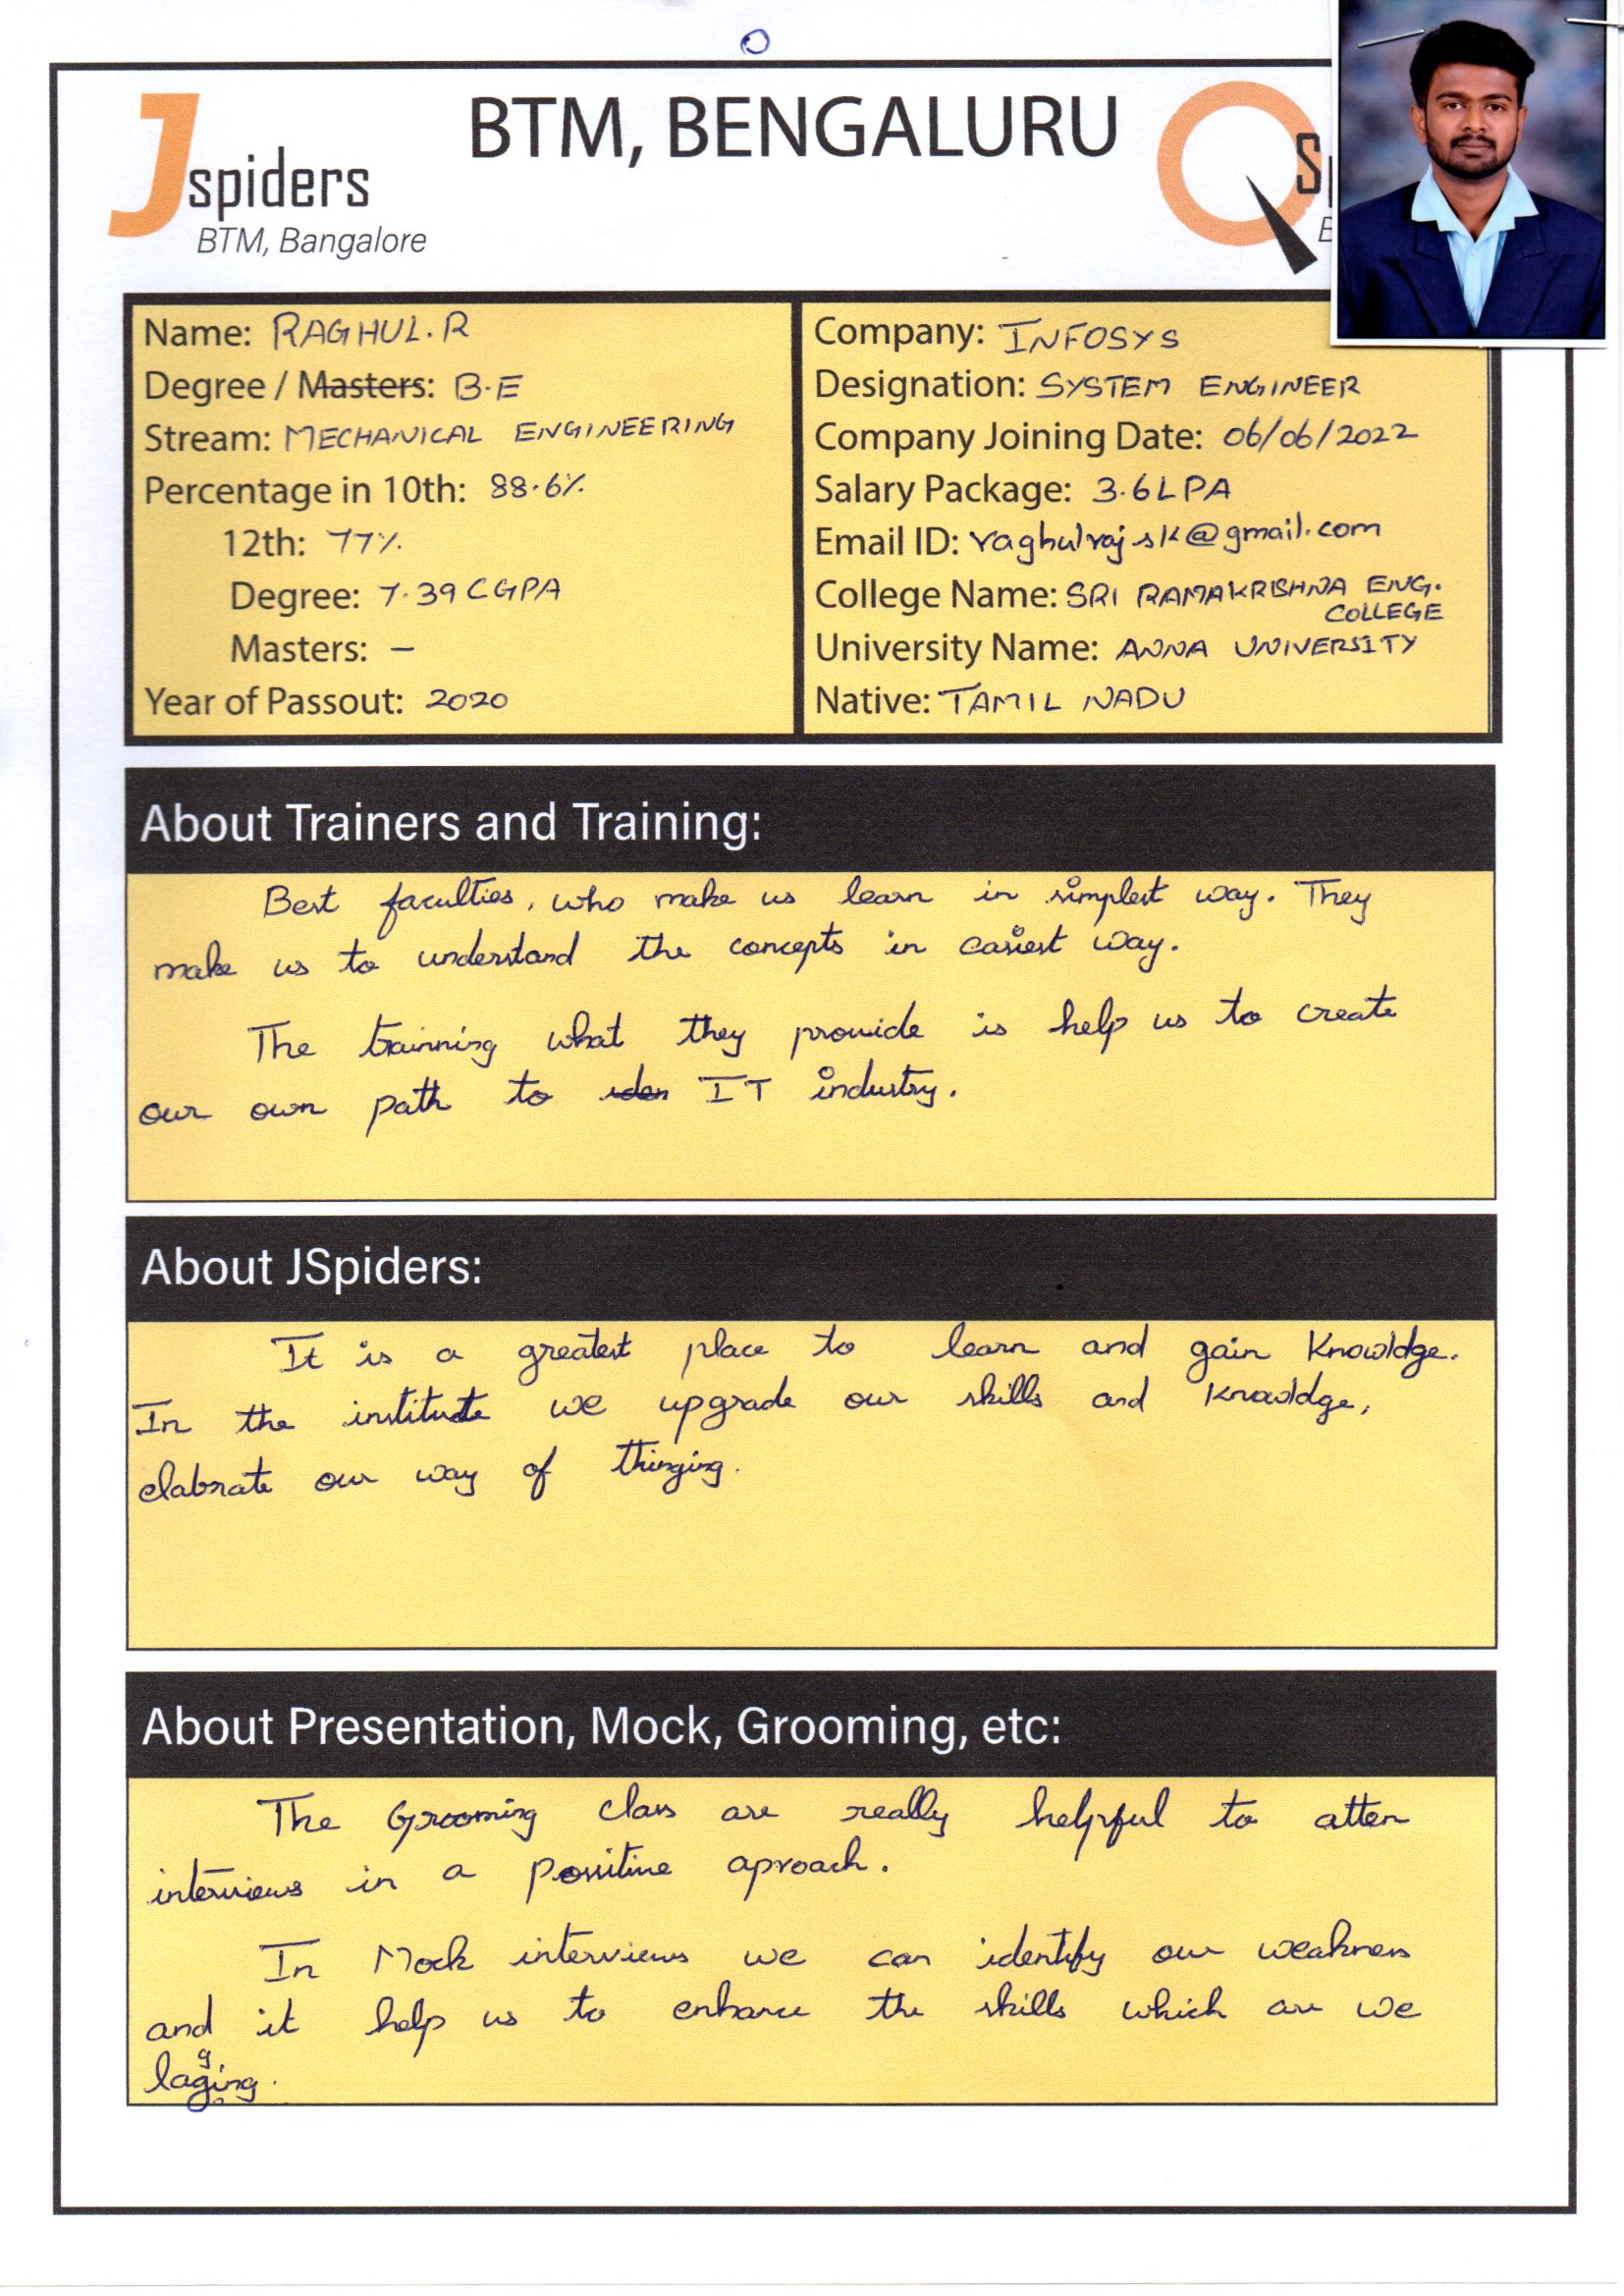 BTM, BENGALURU
Jspiders
BTM, Bangalore
Name: RAGHUL.R
Degree / Masters: B.E
Stream: MECHANICAL ENGINEERING
Percentage in 10th: 88.6%
12th: 77%
Degree: 7.39 CGPA
Masters: -
Year of Passout: 2020
Company: INFOSYS
Designation: SYSTEM ENGINEER
Company Joining Date: 06/06/2022
Salary Package: 3.6LPA
Email ID: raghulraj.sk@gmail.com
College Name: SRI RAMAKRISHNA ENG.
COLLEGE
University Name: ANNA UNIVERSITY
Native: TAMIL NADU
About Trainers and Training:
Best faculties, who make us learn in simplest way. They
make us to understand the concepts in easiest way.
The trainning what they provide is help us to create
our own path to IT industry.
About JSpiders:
It is a greatest place to learn and gain Knowldge.
In the institute we upgrade our skills and Knowldge,
elabrate our way of thinging.
About Presentation, Mock, Grooming, etc:
The Grooming class are really helpful to atten
interviews in a positive aproach.
In Mock interviews we can identify our weakness
and it help us to enhance the skills which are we
lagging.